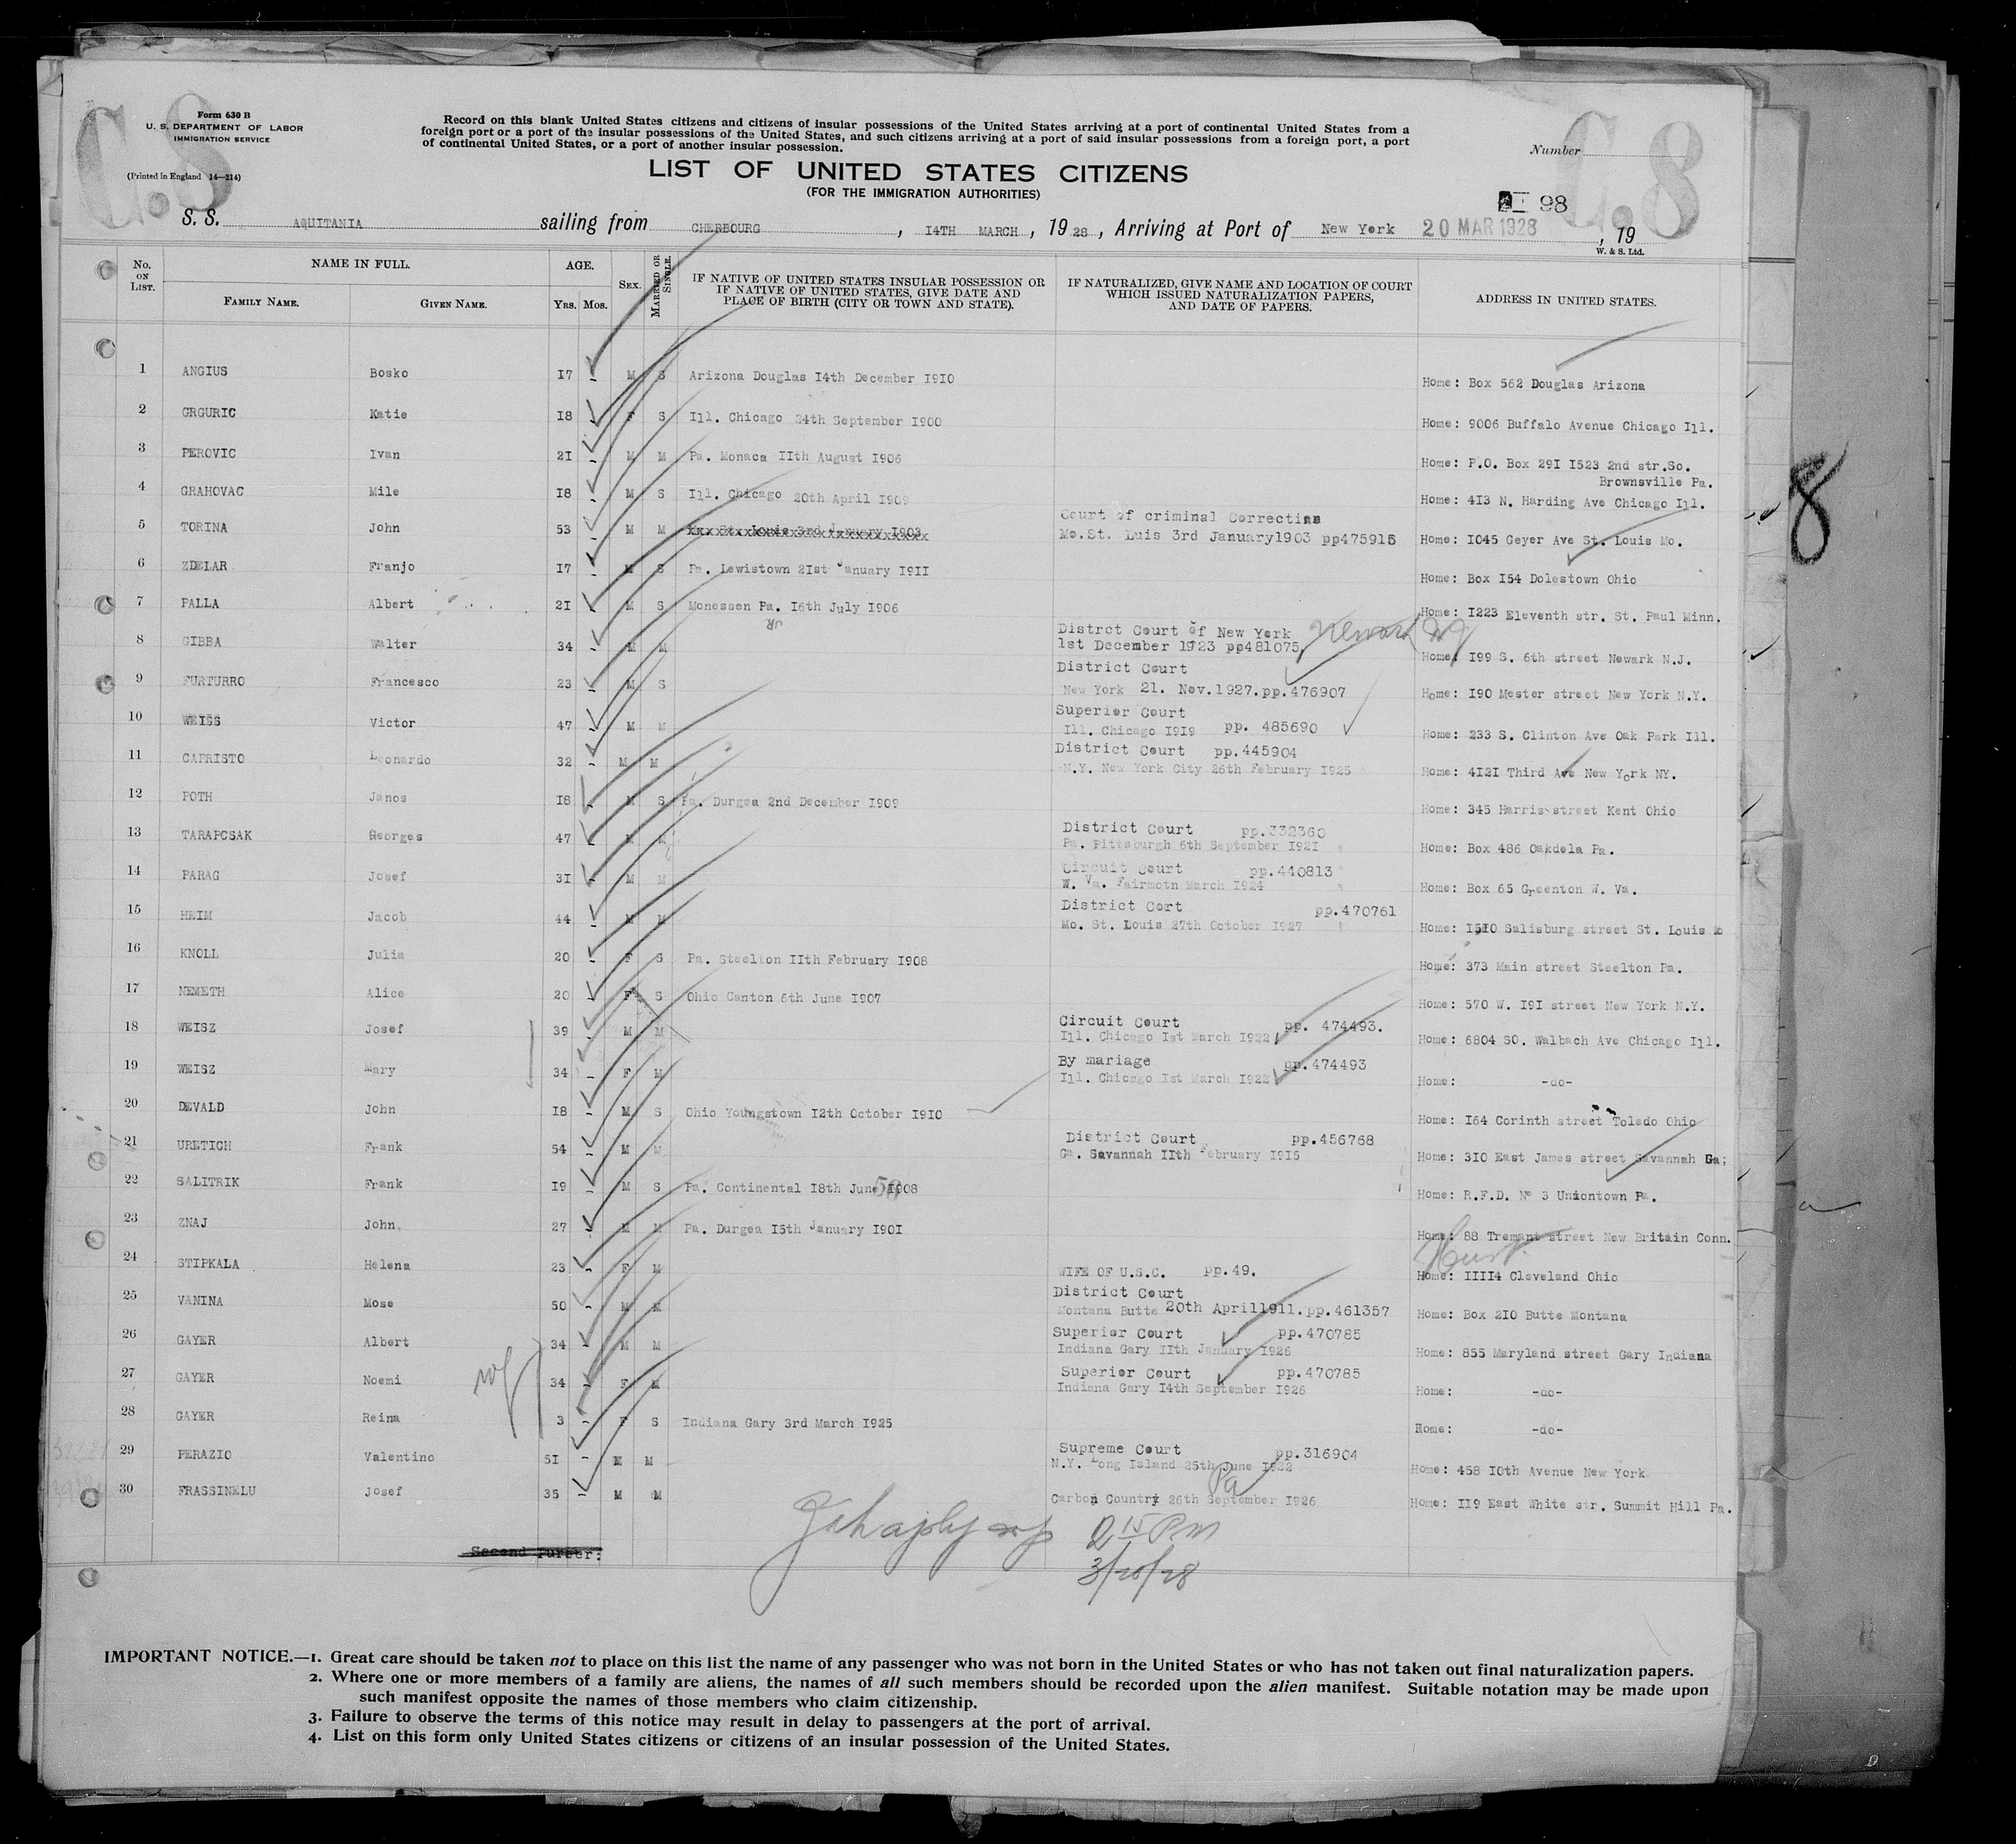 C.8
Form 630 B
U. S. DEPARTMENT OF LABOR
IMMIGRATION SERVICE
(Printed in England 14—214)
Record on this blank United States citizens and citizens of insular possessions of the United States arriving at a port of continental United States from a
foreign port or a port of the insular possessions of the United States, and such citizens arriving at a port of said insular possessions from a foreign port, a port
of continental United States, or a port of another insular possession.
LIST OF UNITED STATES CITIZENS
(FOR THE IMMIGRATION AUTHORITIES)
Number
C.8
98
S. S. AQUITANIA sailing from CHERBOURG, I4TH MARCH, 19 28, Arriving at Port of New York 20 MAR 1928, 19
W. & S. Ltd.
No. ON LIST. NAME IN FULL. AGE. SEX. MARRIED OR SINGLE. IF NATIVE OF UNITED STATES INSULAR POSSESSION OR IF NATIVE OF UNITED STATES, GIVE DATE AND PLACE OF BIRTH (CITY OR TOWN AND STATE). IF NATURALIZED, GIVE NAME AND LOCATION OF COURT WHICH ISSUED NATURALIZATION PAPERS, AND DATE OF PAPERS. ADDRESS IN UNITED STATES.
FAMILY NAME. GIVEN NAME. Yrs. Mos.
1 ANGIUS Bosko I7 - M S Arizona Douglas I4th December I9I0 Home: Box 562 Douglas Arizona
2 GRGURIC Katie I8 - F S Ill. Chicago 24th September I900 Home: 9006 Buffalo Avenue Chicago Ill.
3 PEROVIC Ivan 2I - M M Pa. Monaca IIth August I906 Home: P.O. Box 29I I523 2nd str.So.
Brownsville Pa.
4 GRAHOVAC Mile I8 - M S Ill. Chicago 20th April I909 Home: 4I3 N. Harding Ave Chicago Ill.
5 TORINA John 53 - M M St. Louis 3rd January I903 Court of criminal Corrections
Mo.St. Luis 3rd January1903 pp475915 Home: I045 Geyer Ave St. Louis Mo.
6 ZDELAR Franjo I7 - M S Pa. Lewistown 2Ist January I9II Home: Box I54 Dolestown Ohio
7 PALLA Albert 2I - M S Monessen Pa. I6th July I906 Home: I223 Eleventh str. St. Paul Minn.
8 GIBBA Walter 34 - M M Distrct Court of New York Newark NJ
1st December 1923 pp481075, Home: I99 S. 6th street Newark N.J.
9 FURTURRO Francesco 23 - M S District Court
New York 21. Nov.1927.pp.476907 Home: I90 Mester street New York N.Y.
10 WEISS Victor 47 - M M Superior Court
Ill. Chicago I9I9 pp. 485690 Home: 233 S. Clinton Ave Oak Park Ill.
11 CAPRISTO Leonardo 32 - M M District Court pp.445904
N.Y. New York City 26th February I925 Home: 4I2I Third Ave New York NY.
12 POTH Janos I8 - M S Pa. Durgea 2nd December I909 Home: 345 Harris street Kent Ohio
13 TARAPCSAK Georges 47 - M M District Court pp.332360
Pa. Pittsburgh 6th September I92I Home: Box 486 Oakdela Pa.
14 PARAG Josef 3I - M M Circuit Court pp.440813
W. Va. Fairmotn March I924 Home: Box 65 Greenton W. Va.
15 HEIM Jacob 44 - M M District Cort pp.470761
Mo. St. Louis 27th October I927 Home: I5I0 Salisburg street St. Louis Mo
16 KNOLL Julia 20 - F S Pa. Steelton IIth February I908 Home: 373 Main street Steelton Pa.
17 NEMETH Alice 20 - F S Ohio Canton 6th June I907 Home: 570 W. I9I street New York N.Y.
18 WEISZ Josef 39 M M Circuit Court pp. 474493.
Ill. Chicago Ist March I922 Home: 6804 SO. Walbach Ave Chicago Ill.
19 WEISZ Mary 34 - F M By mariage pp.474493
Ill. Chicago Ist March I922 Home: -do-
20 DEVALD John I8 - M S Ohio Youngstown I2th October I9I0 Home: I64 Corinth street Toledo Ohio
21 URETICH Frank 54 - M M District Court pp.456768
Ga. Savannah IIth February I9I5 Home: 3I0 East James street Savannah Ga;
22 SALITRIK Frank I9 - M S Pa. Continental I8th June I908 Home: R.F.D. No 3 Uniontown Pa.
23 ZNAJ John. 27 - M M Pa. Durgea I5th January I90I Home: 88 Tremant street New Britain Conn.
24 STIPKALA Helena 23 - F M WIFE OF U.S.C. pp.49. Home: IIII4 Cleveland Ohio
25 VANINA Mose 50 - M M District Court
Montana Butte 20th April1911.pp.461357 Home: Box 2I0 Butte Montana
26 GAYER Albert 34 - M M Superior Court pp.470785
Indiana Gary IIth January I926 Home: 855 Maryland street Gary Indiana
27 GAYER Noemi 34 - F M Superior Court pp.470785
Indiana Gary I4th September I926 Home: -do-
28 GAYER Reina 3 - F S Indiana Gary 3rd March I925 Home: -do-
29 PERAZIO Valentino 5I - M M Supreme Court pp.316904
N.Y. Long Island 25th June I922 Home: 458 I0th Avenue New York
30 FRASSINELU Josef 35 - M M Pa
Carbon Country 26th September I926 Home: II9 East White str. Summit Hill Pa.
Second Purser:
2 15 PM
3/20/28
8
IMPORTANT NOTICE.—1. Great care should be taken not to place on this list the name of any passenger who was not born in the United States or who has not taken out final naturalization papers.
2. Where one or more members of a family are aliens, the names of all such members should be recorded upon the alien manifest. Suitable notation may be made upon
such manifest opposite the names of those members who claim citizenship.
3. Failure to observe the terms of this notice may result in delay to passengers at the port of arrival.
4. List on this form only United States citizens or citizens of an insular possession of the United States.